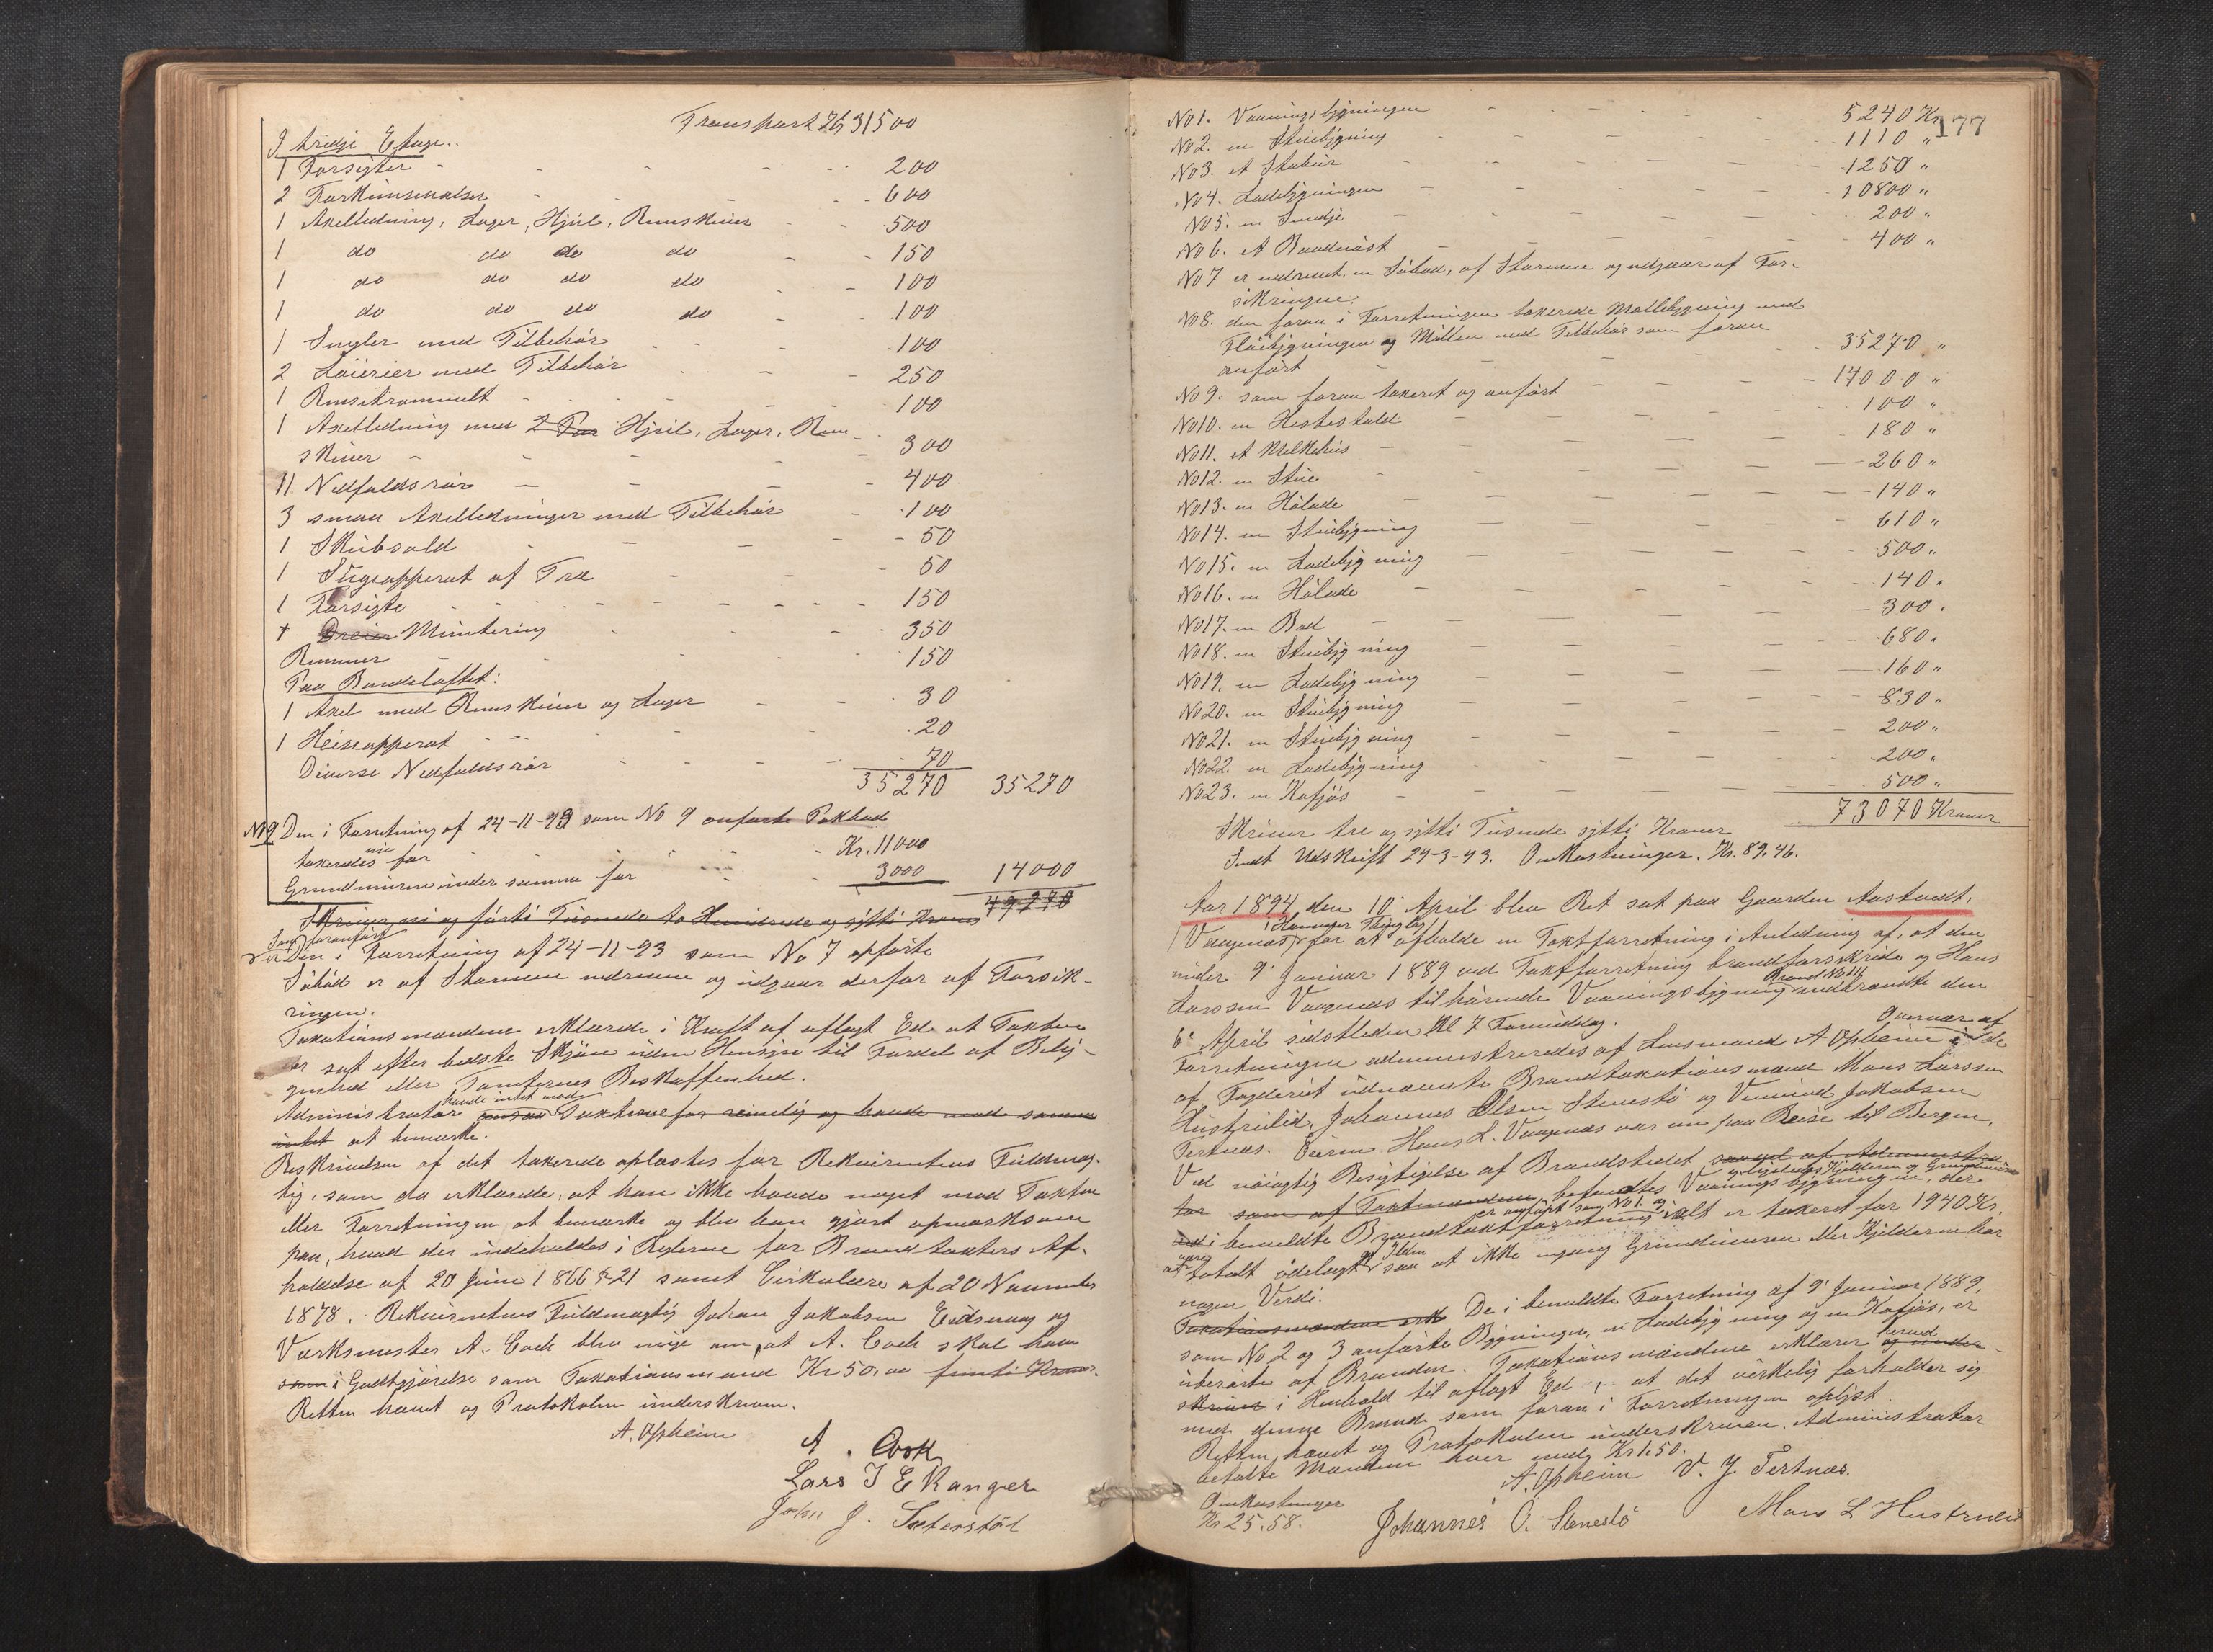 Transport Kr 31500
I tredje Etage.
1 Forsigter - 200
2 600
1 Axelledning, Lager, Hjul, Remskiver 500
1 do do do do 150
1 do do do do 100
1 do do do do 100
1 med Tilbehör 100
2 med Tilbehör 250
1 100
1 Axelledning med 2 Par Hjul, Lager, Rem-
skiver - 300
11 Nedfaldsrör 400
3 smaa Axelledninger med Tilbehör 100
1 Skibsold 50
1 Sugeapparat af Træ 50
1 Forsigte 150
Montering 350
Remmer 150
Paa Bandeloftet:
1 Axel med Remskiver og Lager 30
1 Heiseapparat 20
Diverse Nedfaldsrör 70
35270 35270
No 9 Den i Forretning af 24-11-93 som No 9 anførte Pakbod
takseredes nu for Kr. 11000
Grundmuren under samme for 3000 14000
49270
Skriver ni og förti Tusende to Hundrede og sytti Kroner
Som foranført
Den i Forretning af 24-11-93 som No 7 opførte
Söbod er af Stormen nedreven og udgaar derfor af Forsik-
ringen.
Taxationsmændene erklærede i Kraft af aflagt Ed at Taxten
er sat efter bedste Skjøn uden Hensyn til Fordel af Belig-
genhed eller Tomternes Beskaffenhed.
Administrator havde intet mod Taxterne for rimelig og havde mod samme
intet at bemærke.
Beskrivelsen af det takserede oplæstes for Rekvirentens Fuldmæg-
tig, som da erklærede, at han ikke havde noget mod Taxten
eller Forretningen at bemærke og blev han gjort opmærksom
paa, hvad der indeholdes i Reglerne for Brandtaxters Af-
holdelse af 20 Juni 1866 § 21 samt Cirkulære af 20 November
1878. Rekvirentens Fuldmægtig Johan Jakobsen Eidsvaag og
Værksmester A. Cook blev enige om, at A. Cook skal have
som i Godtgjörelse som Taxationsmand Kr 50,00 femti Kroner.
Retten hævet og Protokolen underskreven.
A. Opheim
A. Cook
Lars J E Kanger
John J. Sæterstöl
177
No 1. Vaaningsbygningen 5240 Kr
No 2. en Stuebygning 1110 "
No 3. et Stabur 1250 "
No 4. Ladebygningen 10800 "
No 5. en Smedje 200 "
No 6. et Baadnöst 400 "
No 7 er nedrevet en Söbod, af Stormen og udgaar af For-
sikringen.
No 8. den foran i Forretningen takserede Möllebygning med
Flöibygningen og Möllen med Tilbehör som foran
anfört 35270 "
No 9. som foran takseret og anfört 14000 "
No 10. en Hestestald 100 "
No 11. et Melkehus 180 "
No 12. en Stue 260 "
No 13. en Hölade 140 "
No 14. en Stuebygning 610 "
No 15. en Ladebygning 500 "
No 16. en Hölade 140 "
No 17. en Bod 300 "
No 18. en Stuebygning 680 "
No 19. en Ladebygning 160 "
No 20. en Stuebygning 830 "
No 21. en Stuebygning 200 "
No 22. en Ladebygning 200 "
No 23. en Kofjös 500 "
73070 Kroner
Skriver tre og sytti Tusende sytti Kroner
Sendt Udskrift 29-3-93. Omkostninger. Kr. 89.46.
Aar 1894 den 10' April blev Ret sat paa Gaarden Aastvedt,
Vaagenæs i Hammer Thinglag for at afholde en Taxtforretning i Anledning af, at den
under 9' Januar 1889 ved Taxtforretning brandforsikrede og Hans
Larssen Vaagenæs tilhörende Vaaningsbygning Brand No 111 nedbrændte den
6' April sidstleden Kl 7 Formiddag.
Forretningen administreredes af Lensmand A Opheim i Overvær af de
af Fogderiet udnævnte Brandtaxationsmænd Mons Larssen
Hustrulid, Johannes Olsen Stenestö og Vemund Jakobsen
Tertnæs. Eieren Hans L. Vaagenæs var nu paa Reise til Bergen.
Ved nöiagtig Besigtigelse af Brandstedet saavel af Administra-
tor som af Taxtmændene befandtes Vaaningsbygningen, der
i bemeldte Brandtaxtforretning er anfört som No 1. og ialt er takseret for 1940 Kr.
at være totalt ödelagt af Ilden saa at ikke engang Grundmuren eller Kjelderen har
nogen Verdi.
Taxationsmændene erk De i bemeldte Forretning af 9' Januar 1889,
som No 2 og 3 anførte Bygninger, en Ladebygning og en Kofjös, er
uberørte af Branden. Taxationsmændene erklærer herved og under-
skriver i Henhold til aflagt Ed, at det virkelig forholder sig
med denne Brand som foran i Forretningen oplyst.
Retten hævet og Protokolen underskreven. Administrator
betalte Mændene hver med Kr 1.50.
A. Opheim V. J. Tertnæs.
Omkostninger
Kr 25.58.
Johannes O. Stenestö
Mons L Hustrulid